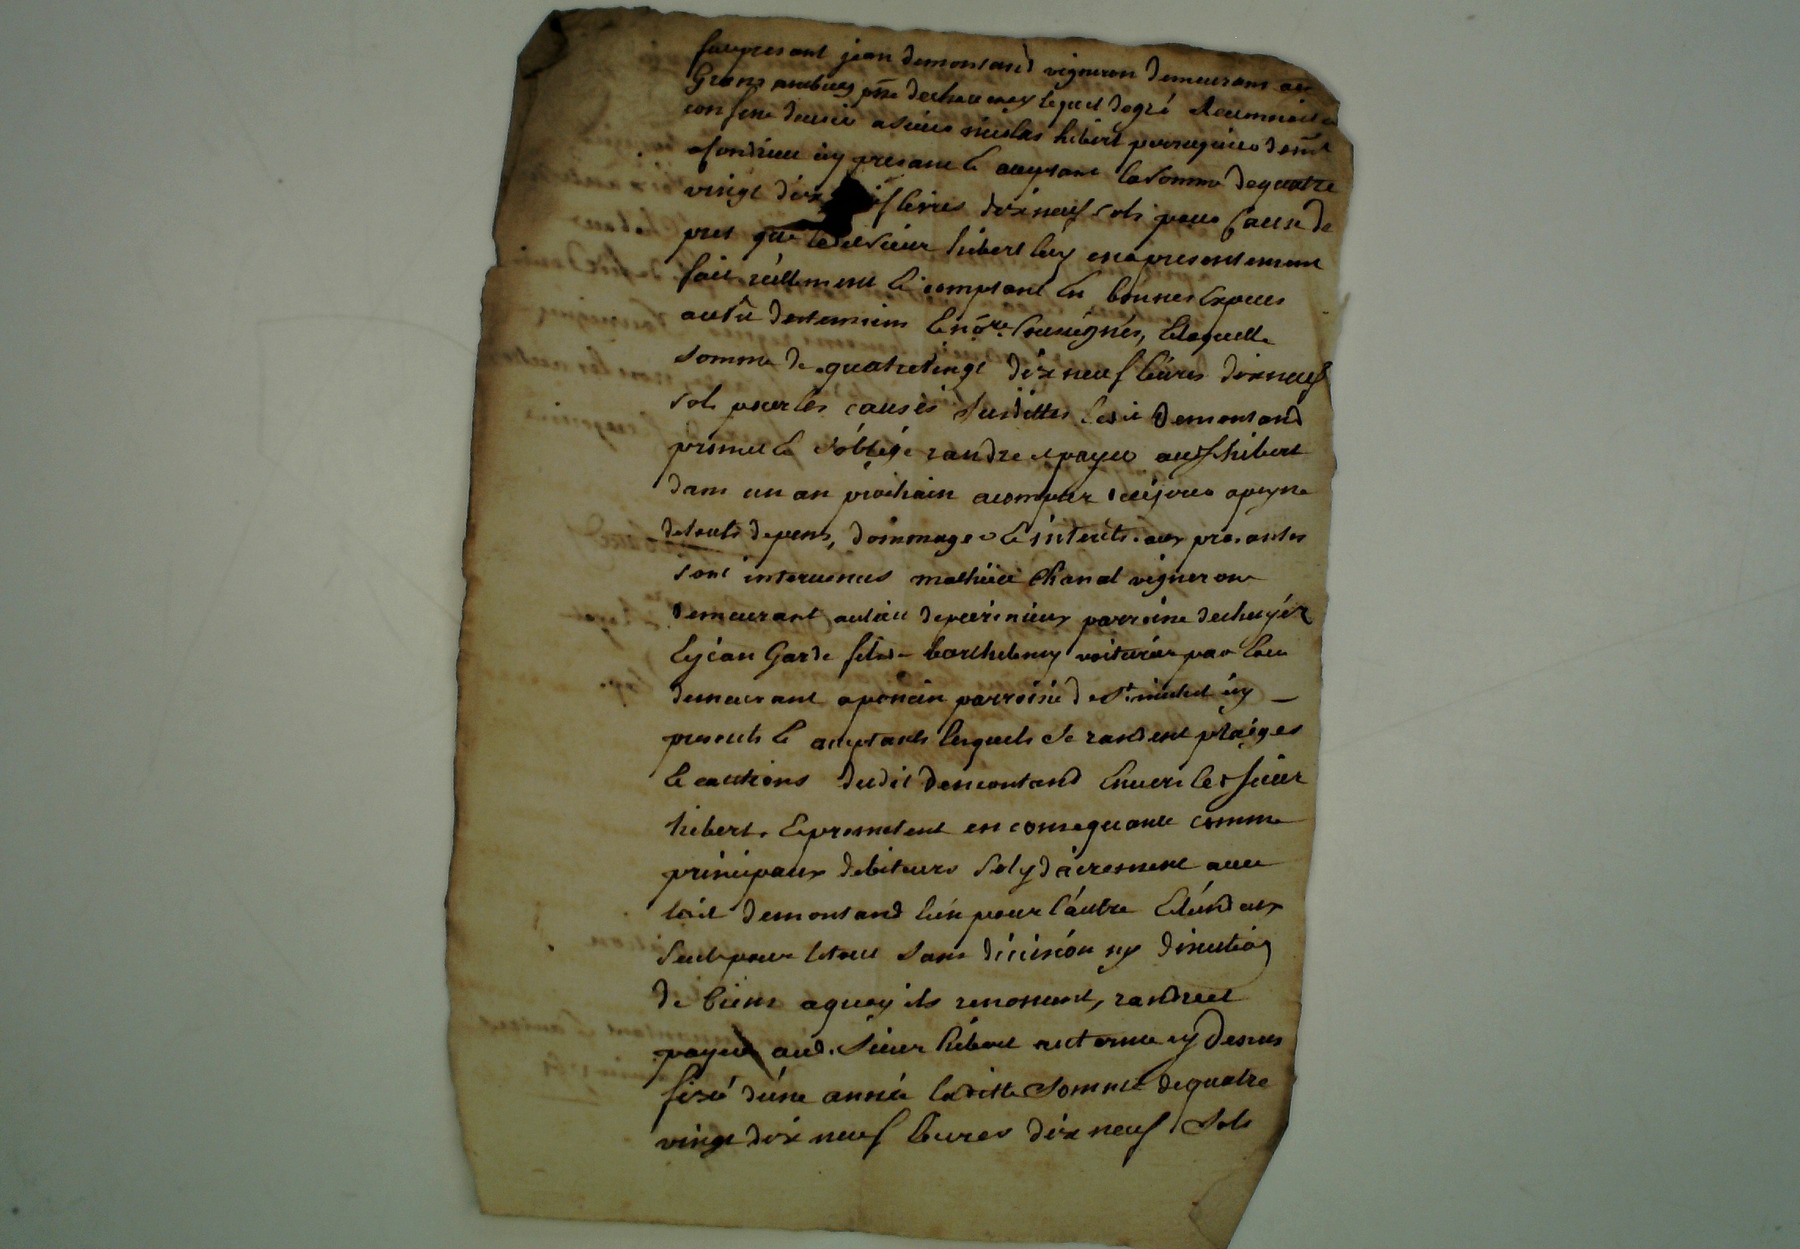 fut present jean demontand vigneron demeurant au
Grans parroisse de lequel de gré Reconnoit et
confesse devoir a sieur nicolas hibert perruquier demt
icy present et aceptant la somme de quatre
vingt dix livres dix neuf sols pour Cause de
pret que ledit sieur hibert luy en a presentement
fait réellement et comptant En bonnes Especes
au vû des temoins Et nore. soussignés, Laquelle
somme de quatre vingt dix neuf livres dix neuf
sols pour les causes susdittes ledit demontand
promet et s'oblige randre et payer aud. sr hibert
dans un an prochain a compter de ce jour a peyne
de touts depens, dommages et interêts. aux presantes
sont intervenus mathieu Chanal vigneron
demeurant au lieu de parroisse de
Et jean Garde fils de barthelemy voiturier par Eau
demeurant a poncin parroisse de st. michel icy
presents et aceptants lesquels se randent pleiges
et cautions dudit demontand Envers led. sieur
hibert. Et prometent en consequance comme
principaux debiteurs solydairement avec
ledit demontand l'un pour l'autre Et l'un d'eux
seul pour le tout sans division ny discution
de biens a quoy ils renoncent, randre et
payer aud. sieur hibert au terme cy dessus
fixé d'une année laditte somme de quatre
vingt dix neuf livres dix neuf sols